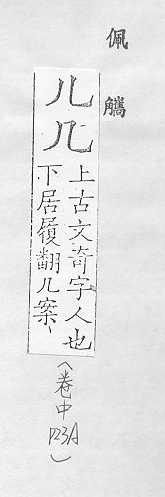 佩觿
儿几
上古文奇字人也
下居履翻几案
(卷中 P23A)